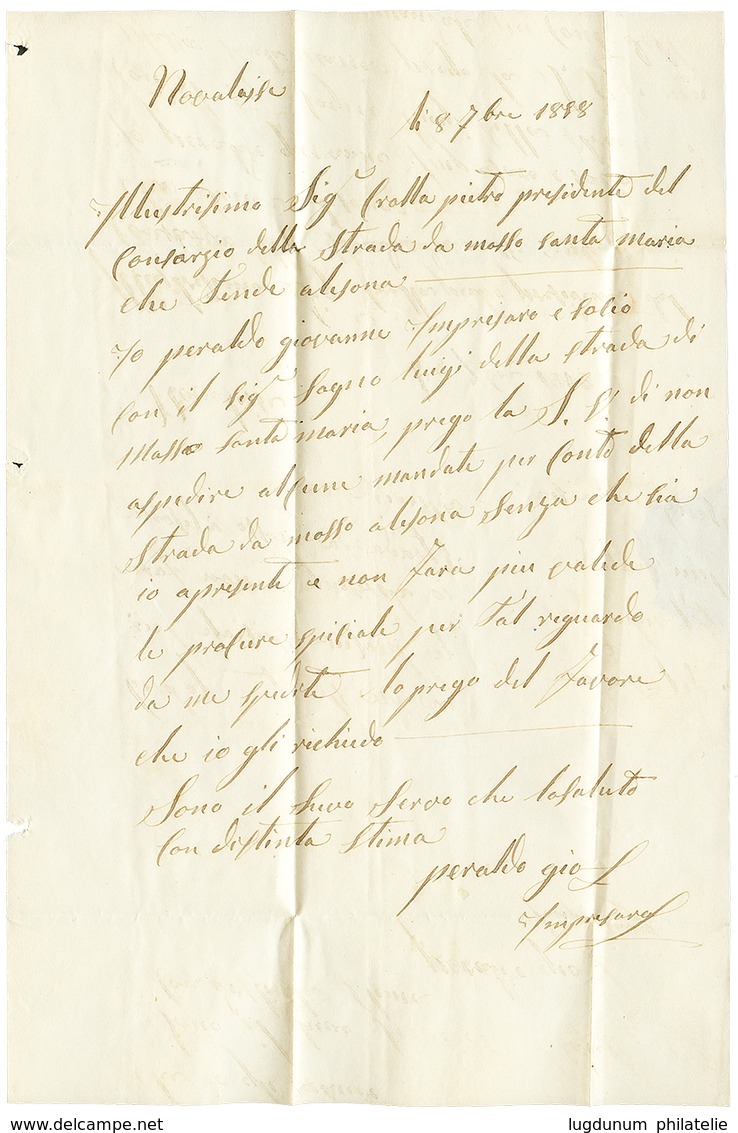 Novalesse
li 8 7bre 1888
Illustrisimo Sigr Crolla pietro presidente del
Consorzio della Strada da mosso santa maria
che Tende alesona
Io peraldo giovanne Impresaro e Socio
con il Sigr Sogno luigi della strada di
Mosso santa maria, prego la S. V. di non
aspedire alcune mandate per Conto della
Strada da mosso alesona Senza che sia
io apresente e non Sara piu valide
le procure speciale per Tal reguardo
da me spedite lo prego del Favore
che io gli richiedo
Sono il Suvo Servo che losaluto
Con distinta Stima
peraldo gio
Impresaro
lugdunum philatelie